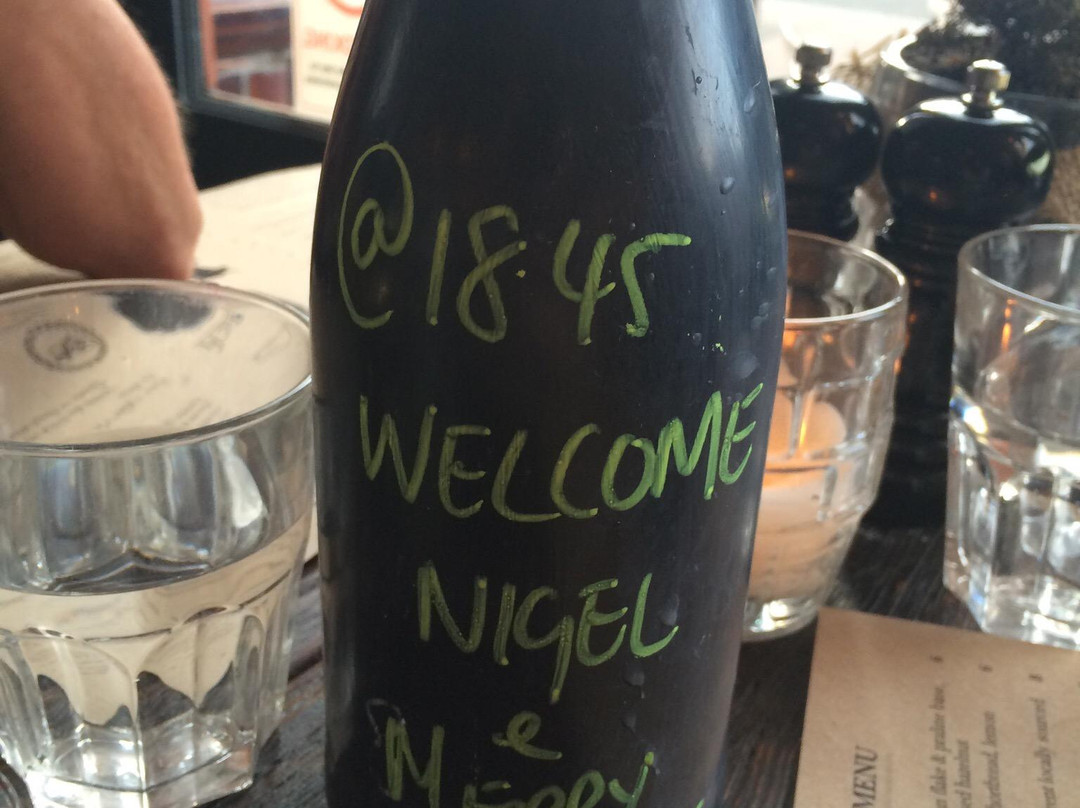 @18:45
WELCOME
NIGEL
e
MERRY
MENU
flake & praline base, 6
hazelnut
lemon 6
locally sourced 8